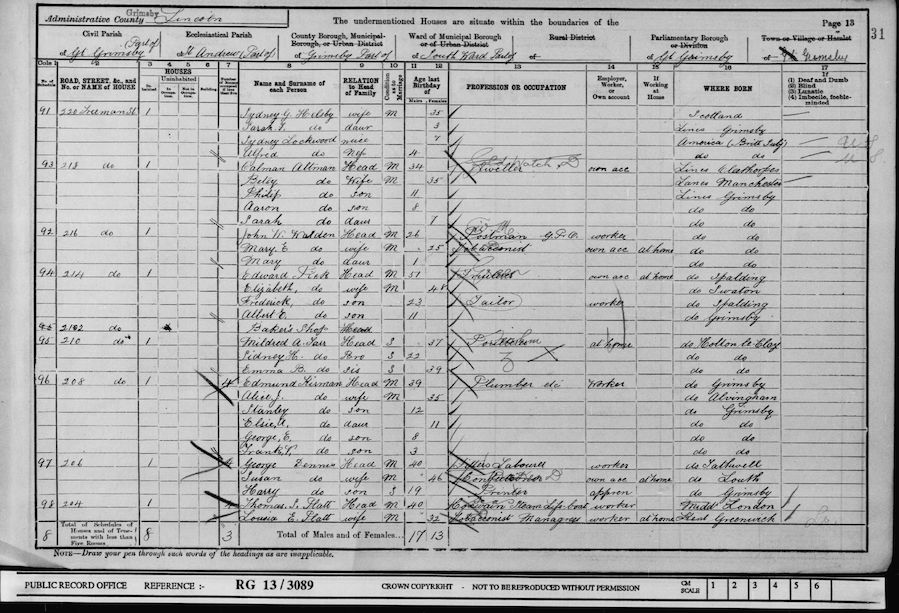 Grimsby
Administrative County Lincoln
The undermentioned Houses are situate within the boundaries of the
Page 13
31
Civil Parish
Ecclesiastical Parish
County Borough, Municipal Borough, or Urban District
Ward of Municipal Borough or of Urban District
Rural District
Parliamentary Borough or Division
Town or Village or Hamlet
of Gt. Grimsby Part of
of St Andrew (Part of
of Grimsby Part of
of South Ward Part of
of
of Gt Grimsby
of Gt Grimsby
Cols 1 2 3 4 5 6 7 8 9 10 11 12 13 14 15 16 17
ROAD, STREET, &c., and No. or NAME of HOUSE
HOUSES
Uninhabited
Building
Name and Surname of each Person
RELATION to Head of Family
Condition as to Marriage
Age last Birthday of
Males Females
PROFESSION OR OCCUPATION
Employer, Worker, or Own account
If Working at Home
WHERE BORN
(1) Deaf and Dumb
(2) Blind
(3) Lunatic
(4) Imbecile, feeble-minded
91 220 Freeman St 1 Sydney G. Helsby wife M 35 Scotland
Sarah do daur 3 Lincs Grimsby
Sydney Lockwood niece 7 America (Britt Subj)
Alfred do Nep 4 do do
93 218 do 1 Calman Altman Head M 34 Jweller own acc Lincs Cleethorpes
Betsy do Wife M 35 Lancs Manchester
Philip do son 11 Lincs Grimsby
Aaron do son 8 do do
Sarah do daur 7 do do
92 216 do 1 John W. Walden Head M 26 Postman G.P.O. worker do do
Mary E do wife M 25 Tobacconist own acc at home do do
Mary do daur 1 do do
94 214 do 1 Edward Head M 51 own acc at home do Spalding
Elizabeth, do wife M 48 do Swaton
Frederick, do son 23 Tailor worker do Spalding
Albert E. do son 11 do Grimsby
95 2102 do Baker's Shop Head
95 210 do 1 Mildred A. Head S 37 at home do Holton le Clay
Sidney H. do Bro S 22 do do
Emma B. do sis S 39 do do
96 208 do 1 4 Edmund Kirman Head M 39 Plumber etc Worker do Grimsby
Alice J. do wife M 35 do Alvingham
Stanley do son 12 do Grimsby
Elsie, A. do daur 11 do do
George, E. do son 8 do do
Frank, do son 3 do do
97 206 1 4 George Dennis Head M 40 Labourer worker do Tathwell
Susan do wife M 46 Confectioner own acc at home do Louth
Harry do son S 19 Printer appren do Grimsby
98 204 1 Thomas J. Platt Head M 40 Steam Life-boat worker Midd London
Louisa E. Platt wife M 32 Tobacconist Manageress worker at home Kent Greenwich
8 Total of Schedules of Houses and of Tenements with less than Five Rooms 8 3 Total of Males and of Females... 17 13
NOTE—Draw your pen through such words of the headings as are inapplicable.
PUBLIC RECORD OFFICE REFERENCE :- RG 13/3089 CROWN COPYRIGHT - NOT TO BE REPRODUCED WITHOUT PERMISSION CM SCALE 1 2 3 4 5 6